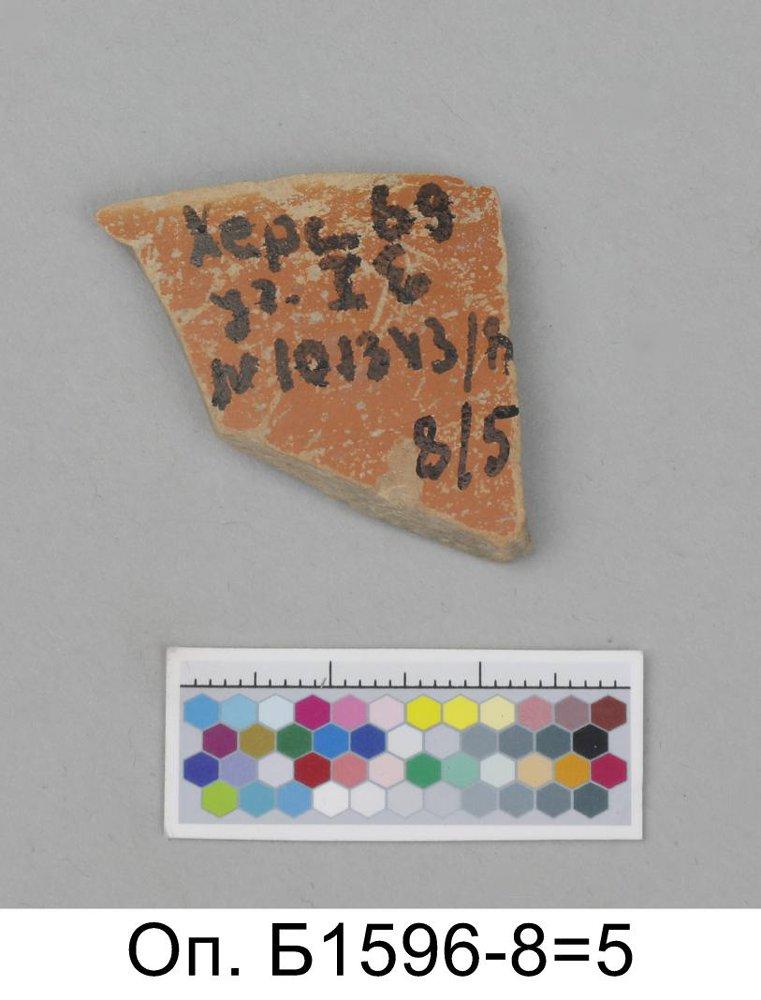 Херс 69
уг. I Б
N 101343/п
8/5
Оп. Б1596-8=5